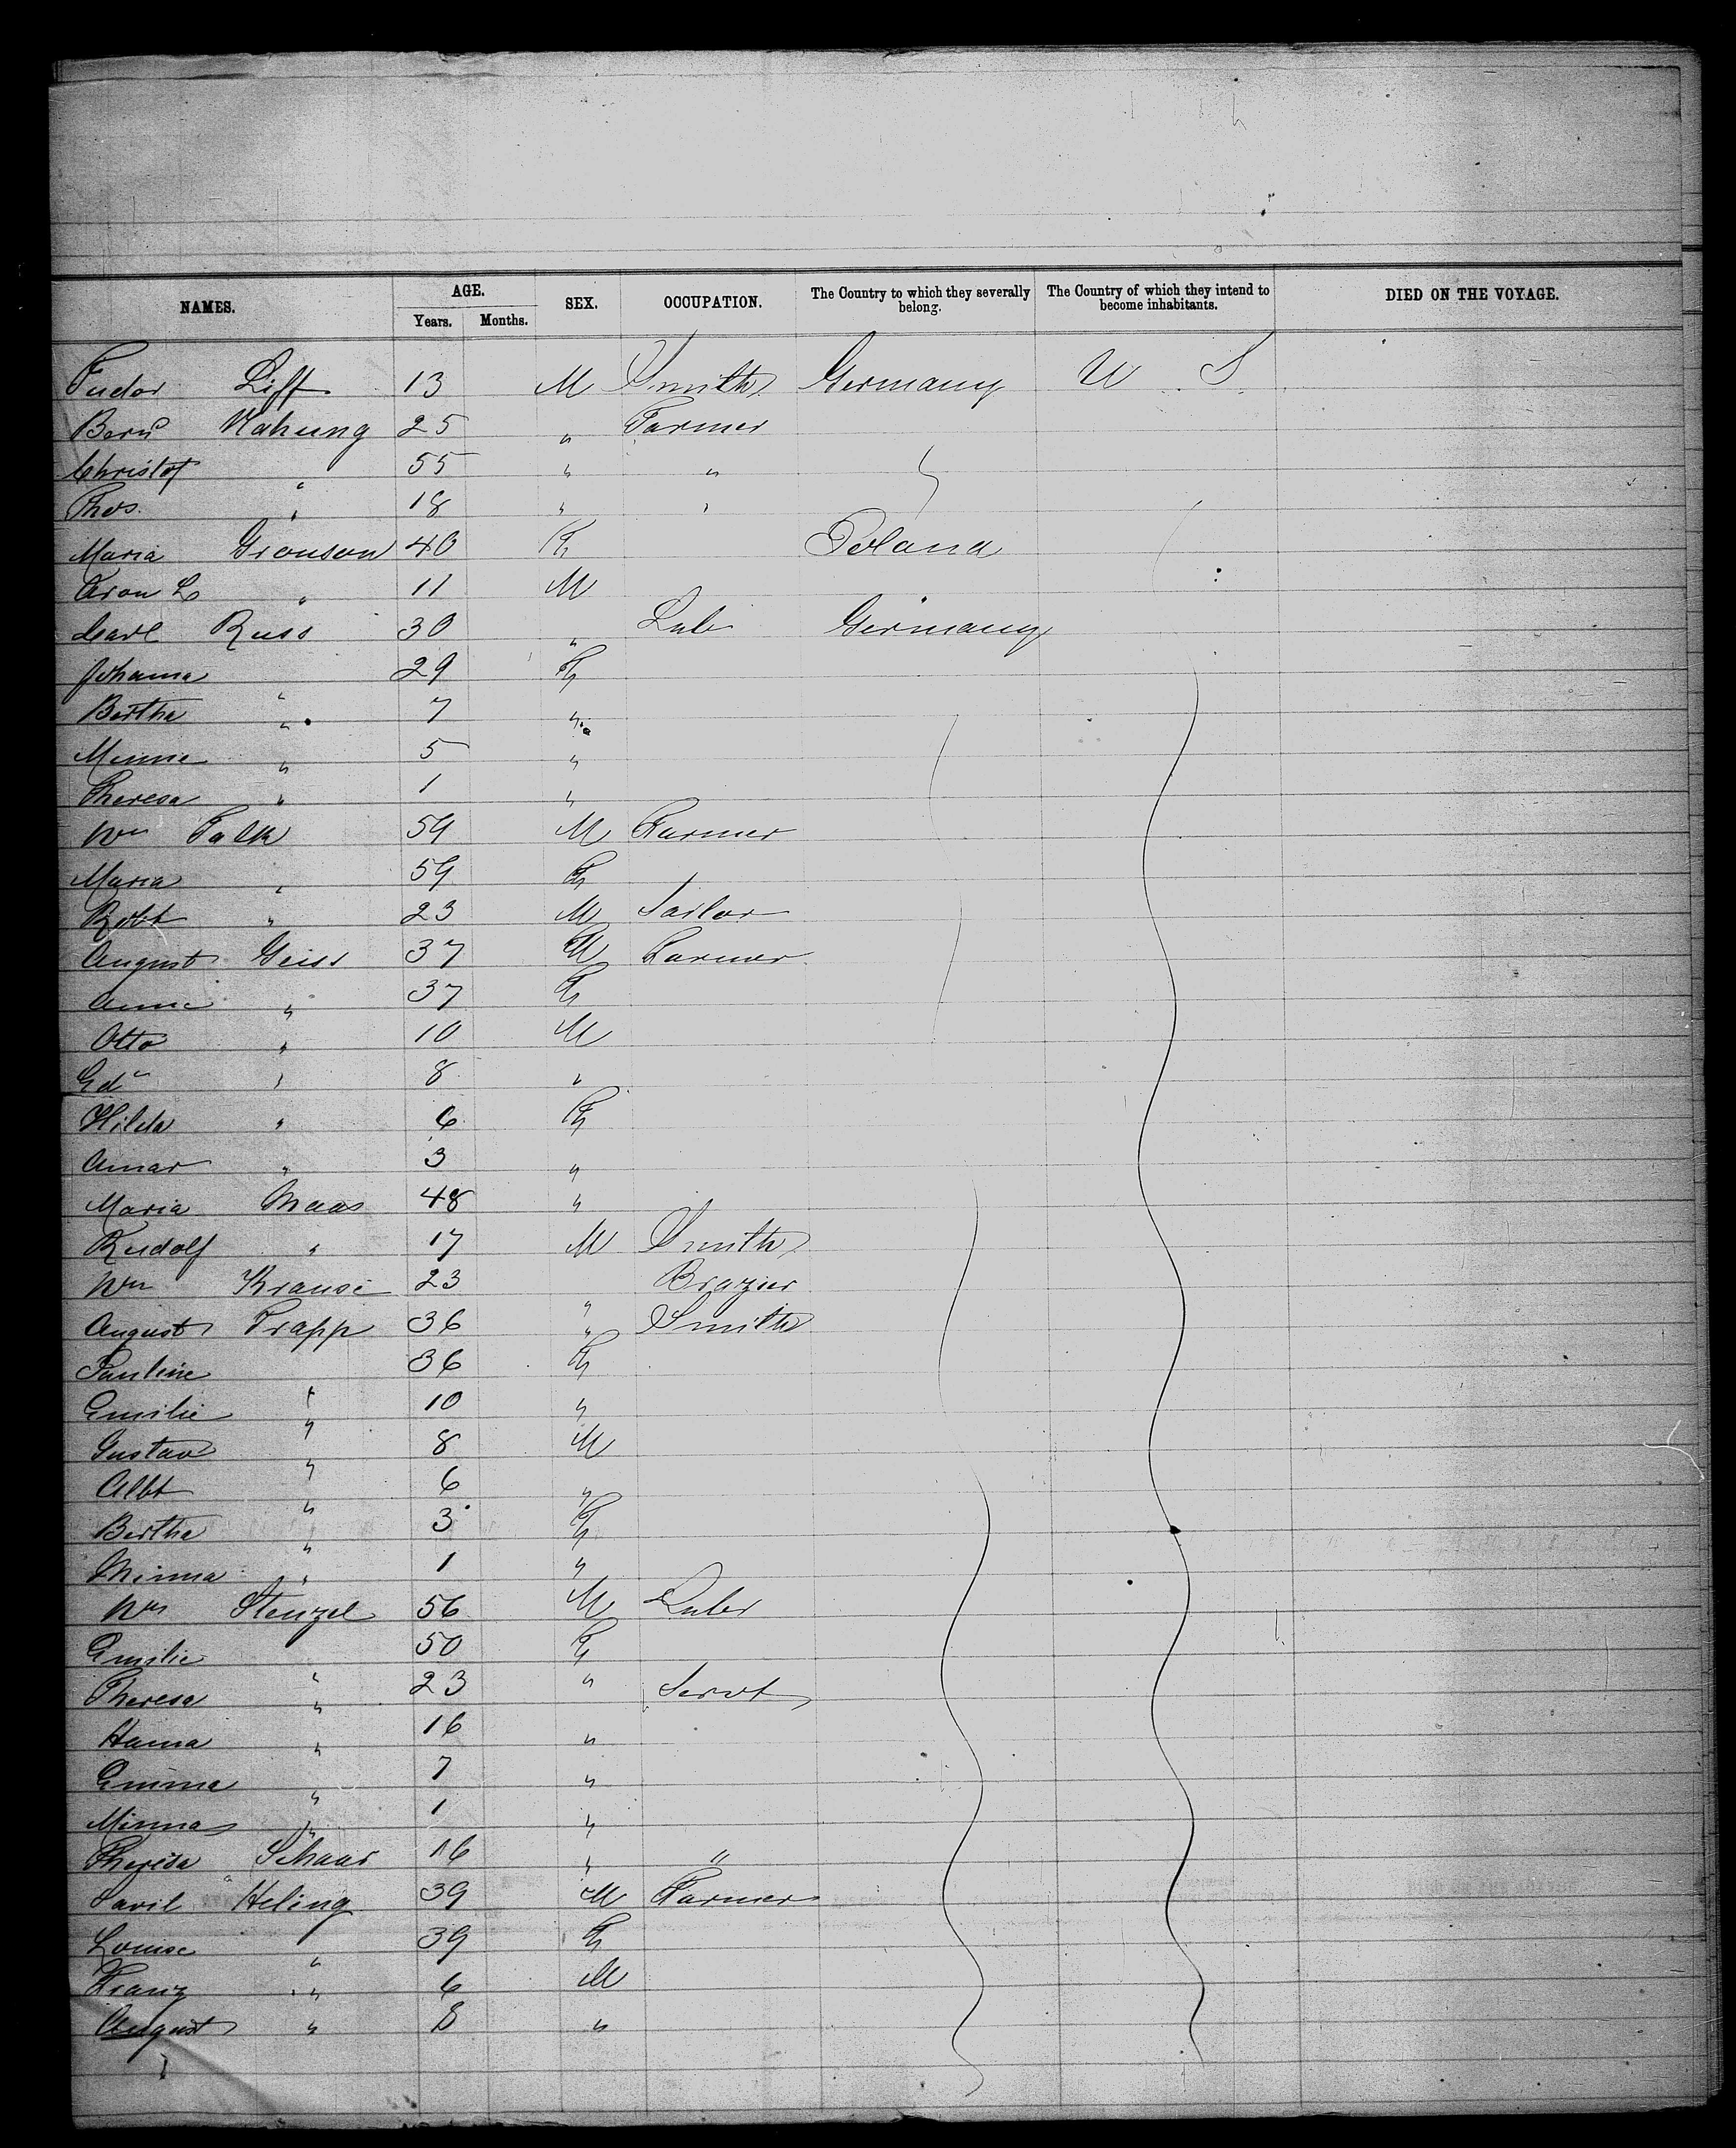 NAMES. AGE. SEX. OCCUPATION. The Country to which they severally belong. The Country of which they intend to become inhabitants. DIED ON THE VOYAGE.
Years. Months.
Tudor Liff 13 M Smith Germany U S
Bern Nahung 25 " Farmer
Christof " 55 " "
Thos. " 18 " "
Maria Gronson 40 F Poland
Aron L " 11 M
Carl Russ 30 " Labr Germany
Johanna " 29 F
Bertha " 7 "
Minnie " 5 "
Theresa " 1 "
Wm Falk 59 M Farmer
Maria " 59 F
Robt " 23 M Sailor
August Geiss 37 M Farmer
Anna " 37 F
Otto " 10 M
Edw " 8 "
Hilda " 6 F
" 3 "
Maria Maas 48 "
Rudolf " 17 M Smith
Wm Krause 23 " Brazier
August Trapp 36 " Smith
Pauline " 36 F
Emilie " 10 "
Gustav " 8 M
Albt " 6 "
Bertha " 3 F
Minna " 1 "
Wm Stenzel 56 M Labr
Emilie " 50 F
Theresa " 23 " Servt
Hanna " 16 "
Emma " 7 "
Minna " 1 "
Theresa Schaar 16 " "
Heling 39 M Farmer
Louise " 39 F
Franz " 6 M
August " 8 "